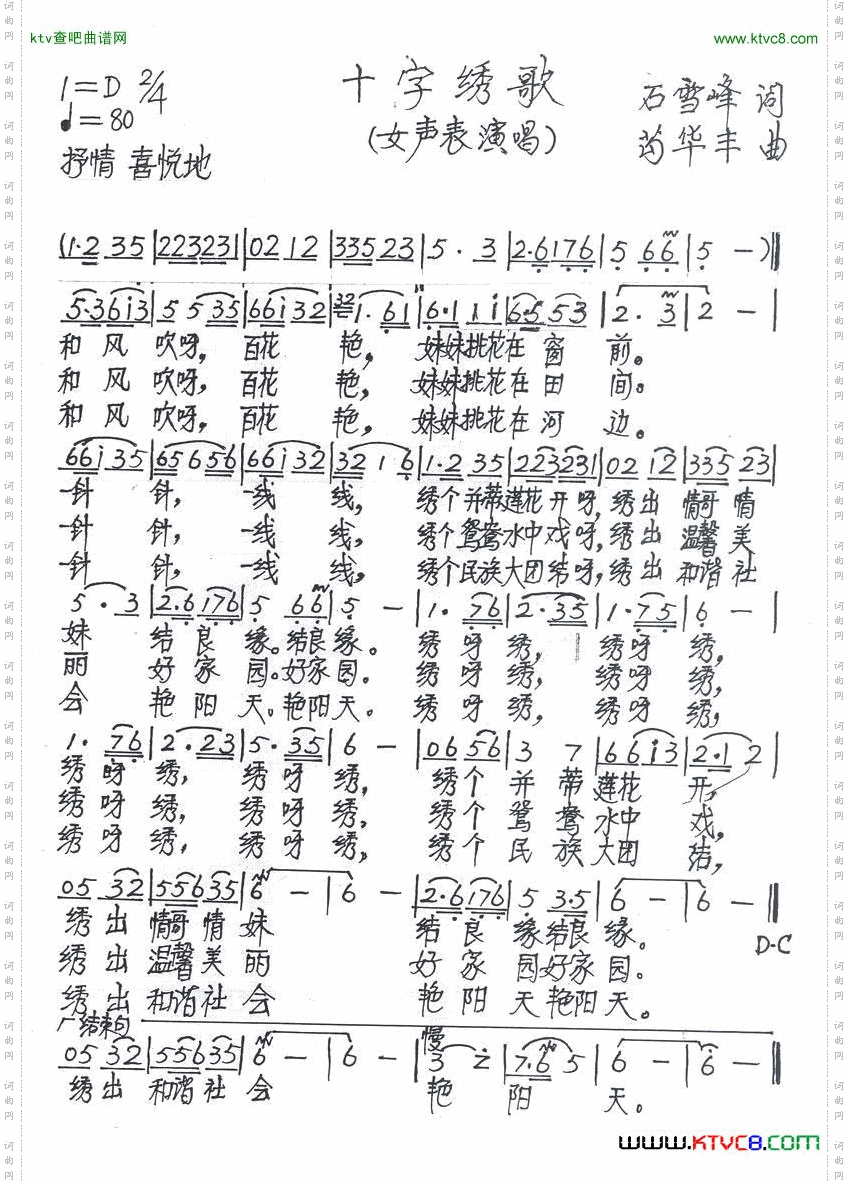 ktv查吧曲谱网
www.ktvc8.com
十字绣歌
(女声表演唱)
1=D 2/4
♩=80
抒情 喜悦地
石雪峰 词
苟华丰 曲
(1·2 35|22323|02 12|33523|5·3|2·6176|5 66|5 —)‖
5·36i3|5 5 35|66i32|32 1·61|6·1 1i|6·5 53|2·3|2 —|
和风吹呀,百花艳,妹妹挑花在窗前。
和风吹呀,百花艳,妹妹挑花在田间。
和风吹呀,百花艳,妹妹挑花在河边。
66i35|65656|66i32|32 1 6|1·2 35|223231|02 12|335 23|
一针针,一线线,绣个并蒂莲花开呀,绣出情哥情
一针针,一线线,绣个鸳鸯水中戏呀,绣出温馨美
一针针,一线线,绣个民族大团结呀,绣出和谐社
5·3|2·6176|5 66|5 —|1·76|2·35|1·75|6 —|
妹结良缘。结良缘。绣呀绣,绣呀绣,
丽好家园。好家园。绣呀绣,绣呀绣,
会艳阳天。艳阳天。绣呀绣,绣呀绣,
1·76|2·23|5·35|6 —|06 56|3 7|66i3|2·1 2|
绣呀绣,绣呀绣,绣个并蒂莲花开,
绣呀绣,绣呀绣,绣个鸳鸯水中戏,
绣呀绣,绣呀绣,绣个民族大团结,
05 32|55635|6 —|6 —|2·6176|5 3·5|6 —|6 —‖
绣出情哥情妹结良缘结良缘。
D·C
绣出温馨美丽好家园好家园。
绣出和谐社会艳阳天艳阳天。
结束句
慢
05 32|55635|6 —|6 —|3 2|7·6 5|6 —|6 —‖
绣出和谐社会艳阳天。
www.KTVC8.com